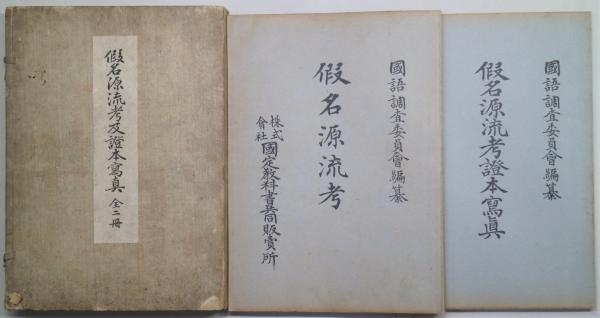 假名源流考及證本寫真 全二冊
國語調査委員會編纂
假名源流考
株式會社 國定敎科書共同販賣所
國語調査委員會編纂
假名源流考證本寫眞